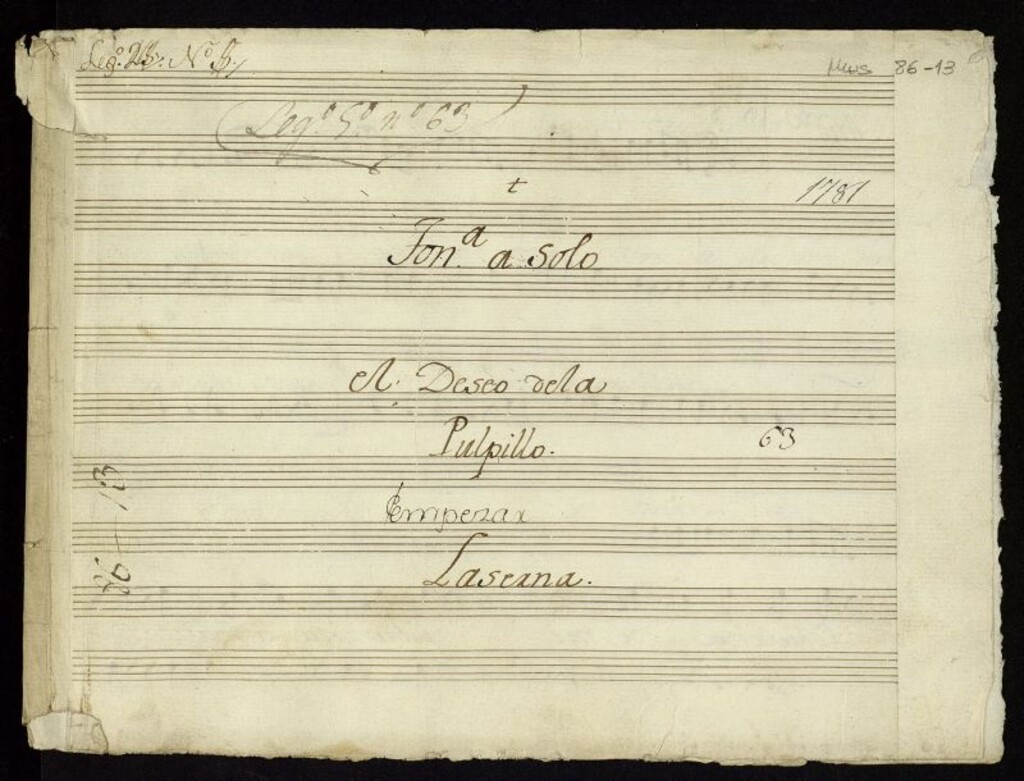 Leg.º 23. Nº 5.
Mus 86-13
Leg.º 5º nº 63
t
1781
Ton.ª a Solo
el. Deseo dela
Pulpillo.
63
Empezar
Laserna.
86-13